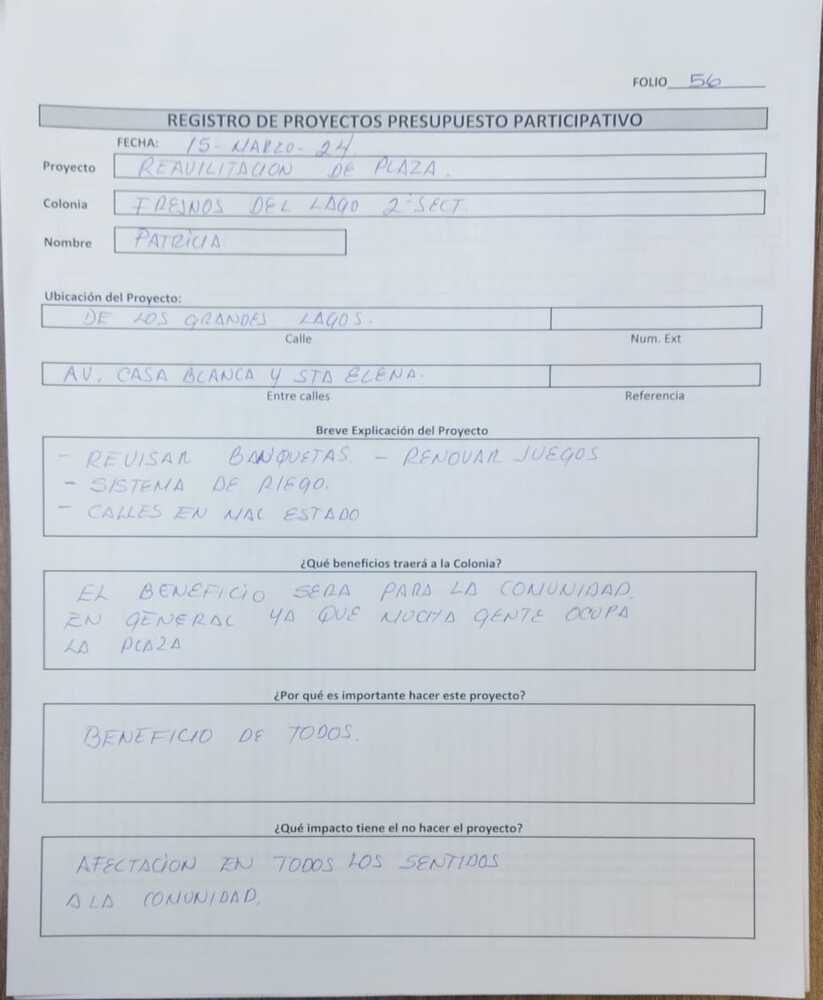 FOLIO 56
REGISTRO DE PROYECTOS PRESUPUESTO PARTICIPATIVO
FECHA: 15-MARZO-24
Proyecto REAVILITACION DE PLAZA.
Colonia FRESNOS DEL LAGO 2ª SECT.
Nombre PATRICIA
Ubicación del Proyecto:
DE LOS GRANDES LAGOS.
Calle Num. Ext
AV. CASA BLANCA Y STA ELENA.
Entre calles Referencia
Breve Explicación del Proyecto
- REVISAR BANQUETAS. - RENOVAR JUEGOS
- SISTEMA DE RIEGO.
- CALLES EN MAL ESTADO
¿Qué beneficios traerá a la Colonia?
EL BENEFICIO SERA PARA LA COMUNIDAD.
EN GENERAL YA QUE MUCHA GENTE OCUPA
LA PLAZA
¿Por qué es importante hacer este proyecto?
BENEFICIO DE TODOS.
¿Qué impacto tiene el no hacer el proyecto?
AFECTACION EN TODOS LOS SENTIDOS
A LA COMUNIDAD.